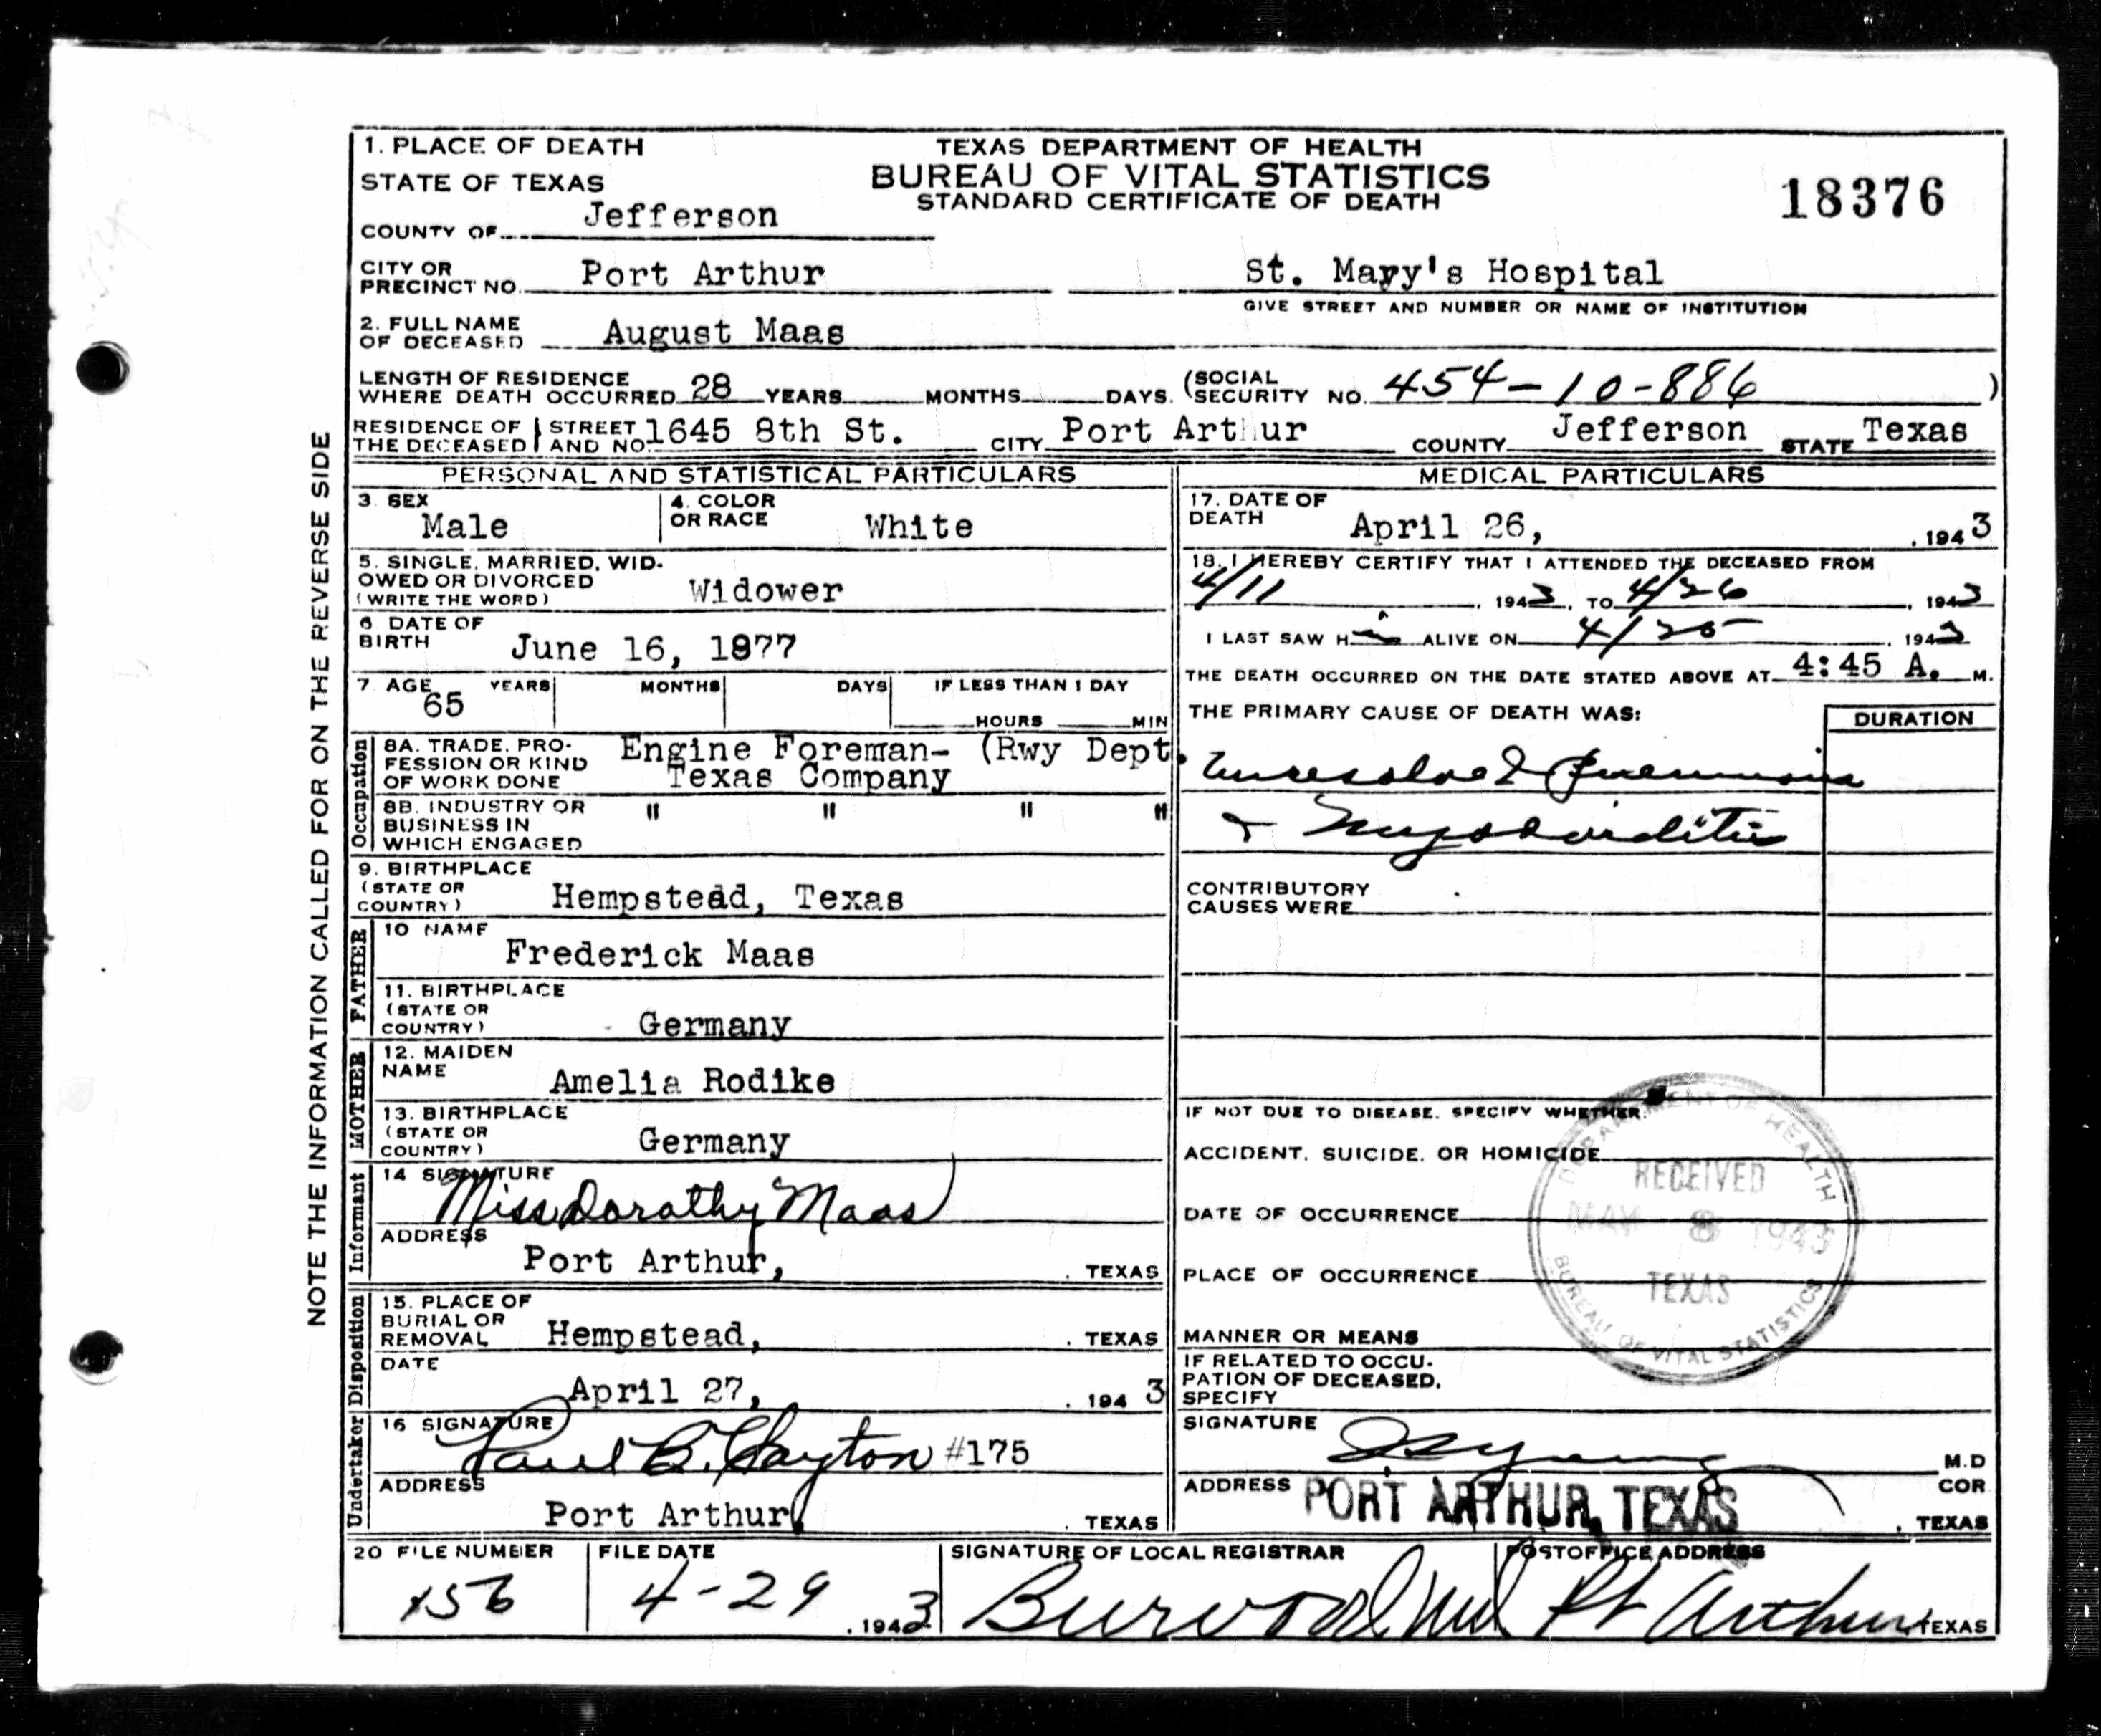 NOTE THE INFORMATION CALLED FOR ON THE REVERSE SIDE
1. PLACE OF DEATH
STATE OF TEXAS
COUNTY OF Jefferson
TEXAS DEPARTMENT OF HEALTH
BUREAU OF VITAL STATISTICS
STANDARD CERTIFICATE OF DEATH
18376
CITY OR
PRECINCT NO. Port Arthur
St. Mary's Hospital
GIVE STREET AND NUMBER OR NAME OF INSTITUTION
2. FULL NAME
OF DECEASED August Maas
LENGTH OF RESIDENCE
WHERE DEATH OCCURRED 28 YEARS MONTHS DAYS. (SOCIAL
SECURITY NO. 454-10-886 )
RESIDENCE OF
THE DECEASED
STREET
AND NO. 1645 8th St. CITY Port Arthur COUNTY Jefferson STATE Texas
PERSONAL AND STATISTICAL PARTICULARS
3. SEX
Male
4. COLOR
OR RACE White
5. SINGLE, MARRIED, WID-
OWED OR DIVORCED
(WRITE THE WORD) Widower
6 DATE OF
BIRTH June 16, 1877
7 AGE YEARS MONTHS DAYS IF LESS THAN 1 DAY
65
HOURS MIN
Occupation
8A. TRADE, PRO-
FESSION OR KIND
OF WORK DONE
Engine Foreman- (Rwy Dept.
Texas Company
8B. INDUSTRY OR
BUSINESS IN
WHICH ENGAGED
" " " "
9. BIRTHPLACE
(STATE OR
COUNTRY) Hempstead, Texas
FATHER
10 NAME
Frederick Maas
11. BIRTHPLACE
(STATE OR
COUNTRY) Germany
MOTHER
12. MAIDEN
NAME Amelia Rodike
13. BIRTHPLACE
(STATE OR
COUNTRY) Germany
Informant
14 SIGNATURE
Miss Dorathy Maas
ADDRESS
Port Arthur, . TEXAS
Disposition
15. PLACE OF
BURIAL OR
REMOVAL Hempstead, . TEXAS
DATE
April 27, . 194 3
Undertaker
16 SIGNATURE
Paul B. Clayton #175
ADDRESS
Port Arthur, . TEXAS
MEDICAL PARTICULARS
17. DATE OF
DEATH April 26, , 1943
18. I HEREBY CERTIFY THAT I ATTENDED THE DECEASED FROM
4/11 , 1943, TO 4/26 , 1943
I LAST SAW Him ALIVE ON 4/25 , 1943
THE DEATH OCCURRED ON THE DATE STATED ABOVE AT 4:45 A. M.
THE PRIMARY CAUSE OF DEATH WAS:
DURATION
Unresolved Pneumonia
+ Myocarditis
CONTRIBUTORY
CAUSES WERE
IF NOT DUE TO DISEASE, SPECIFY WHETHER:
ACCIDENT, SUICIDE, OR HOMICIDE
DATE OF OCCURRENCE
PLACE OF OCCURRENCE
MANNER OR MEANS
IF RELATED TO OCCU-
PATION OF DECEASED,
SPECIFY
DEPARTMENT OF HEALTH
RECEIVED
MAY 8 1943
TEXAS
BUREAU OF VITAL STATISTICS
SIGNATURE
M.D
ADDRESS PORT ARTHUR, TEXAS
COR
, TEXAS
20 FILE NUMBER
156
FILE DATE
4-29 , 1943
SIGNATURE OF LOCAL REGISTRAR
POSTOFFICE ADDRESS
Pt Arthur, TEXAS